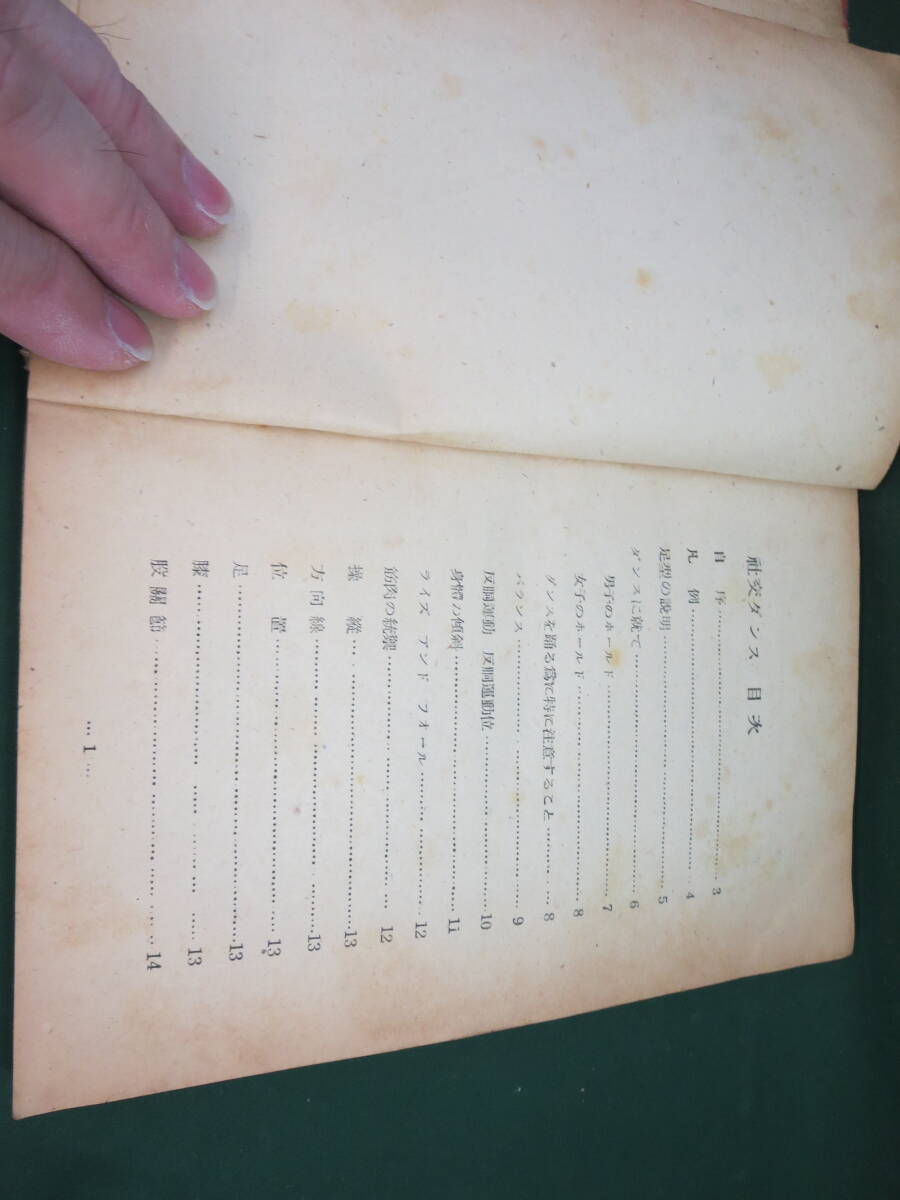 社交ダンス 目次
自序……………………………3
凡例……………………………4
足型の説明……………………………5
ダンスに就て……………………………6
男子のホールド……………………………7
女子のホールド……………………………8
ダンスを踊る爲に特に注意すること……………8
バランス……………………………9
反胴運動 反胴運動位……………………10
身體の傾斜……………………………11
ライズ アンド フオール……………………12
筋肉の統禦……………………………12
操縱……………………………13
方向線……………………………13
位置……………………………13
足……………………………13
膝……………………………13
股關節……………………………14
… 1 …